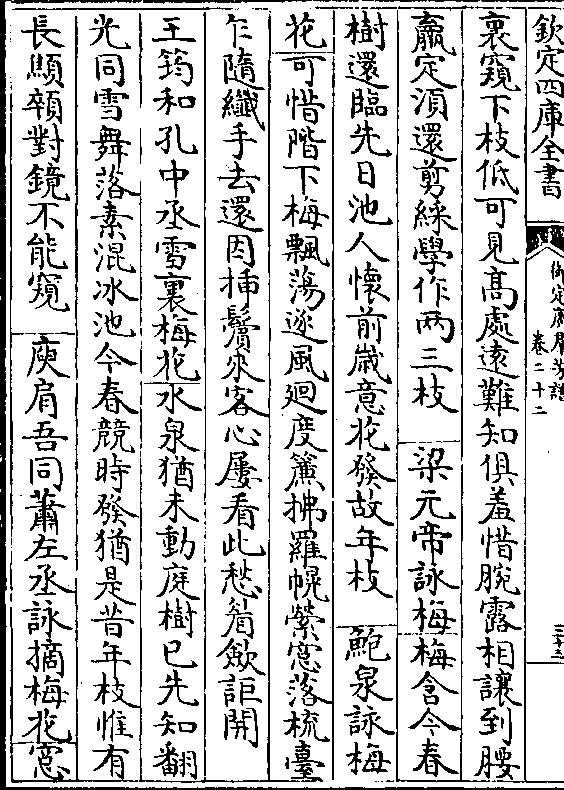 欽定四庫全書
御定廣羣芳譜
卷二十二
裏窺下枝低可見高處遠難知俱羞惜腕露相讓到腰
羸定須還剪綵學作两三枝 梁元帝詠梅梅含今春
樹還臨先日池人懷前歲意花發故年枝 鮑泉詠梅
花可惜階下梅飄蕩逐風廻度簾拂羅幌縈窓落梳臺
乍隨纖手去還因插鬢來客心屢看此愁眉歛詎開
王筠和孔中丞雪裏梅花水泉猶未動庭樹已先知翻
光同雪舞落素混冰池今春競時發猶是昔年枝惟有
長顦顇對鏡不能窺 庾肩吾同蕭左丞詠摘梅花窓